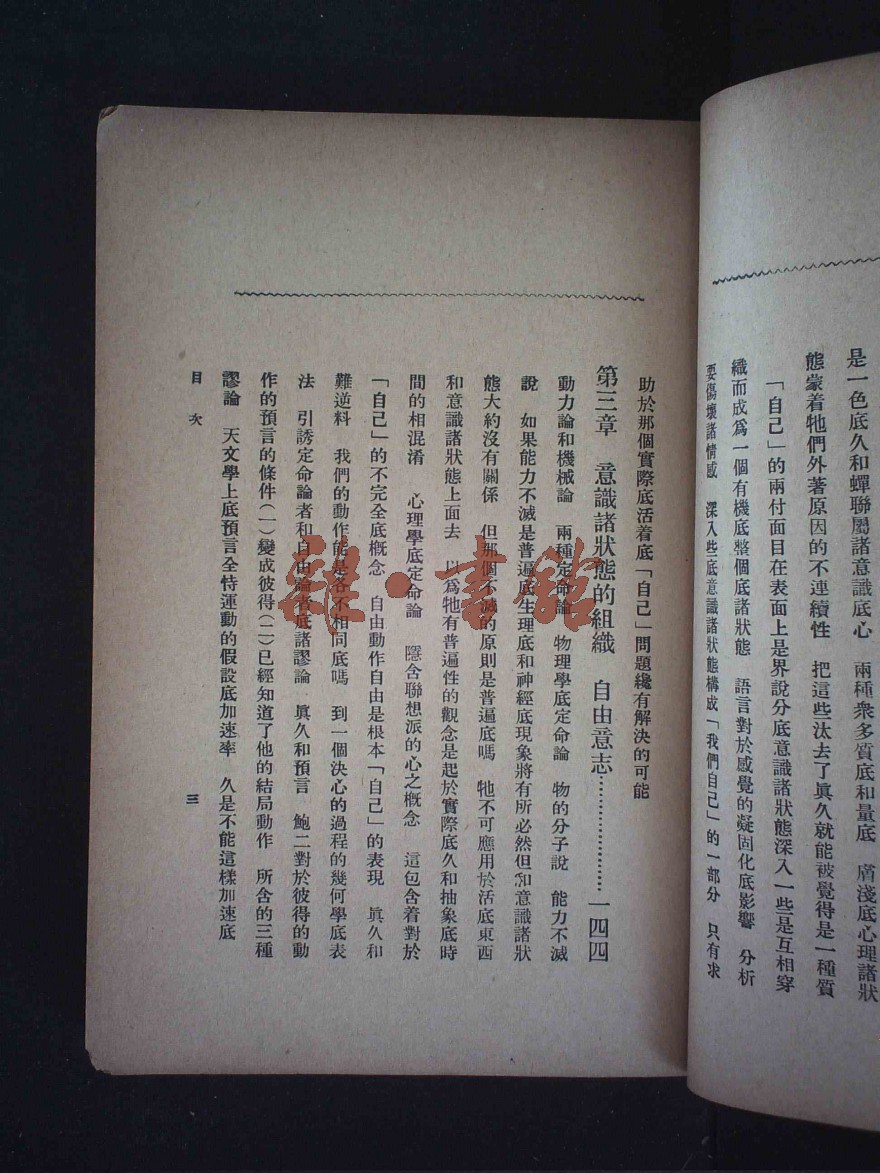 是一色底久和蟬聯屬諸意識底心　兩種衆多質底和量底　膚淺底心理諸狀
態蒙着牠們外著原因的不連續性　把這些汰去了眞久就能被覺得是一種質
「自己」的兩付面目在表面上是界說分底意識諸狀態深入一些是互相穿
織而成爲一個有機底整個底諸狀態　語言對於感覺的凝固化底影響　分析
要傷壞諸情感　深入些底意識諸狀態構成「我們自己」的一部分　只有求
助於那個實際底活着底「自己」問題纔有解決的可能
第三章　意識諸狀態的組織　自由意志…………………一四四
動力論和機械論　兩種定命論　物理學底定命論　物的分子說　能力不滅
說　如果能力不滅是普遍底生理底和神經底現象將有所必然但和意識諸狀
態大約沒有關係　但那個不滅的原則是普遍底嗎　牠不可應用於活底東西
和意識諸狀態上面去　以爲牠有普遍性的觀念是起於實際底久和抽象底時
間的相混淆　心理學底定命論　隱含聯想派的心之概念　這包含着對於
「自己」的不完全底概念　自由動作自由是根本「自己」的表現　眞久和
難逆料　我們的動作能是各不相同底嗎　到一個決心的過程的幾何學底表
法　引誘定命論者和自由論者底諸謬論　眞久和預言　鮑二對於彼得的動
作的預言的條件(一)變成彼得(二)已經知道了他的結局動作　所含的三種
謬論　天文學上底預言全恃運動的假設底加速率　久是不能這樣加速底
目次　三
雜·書館